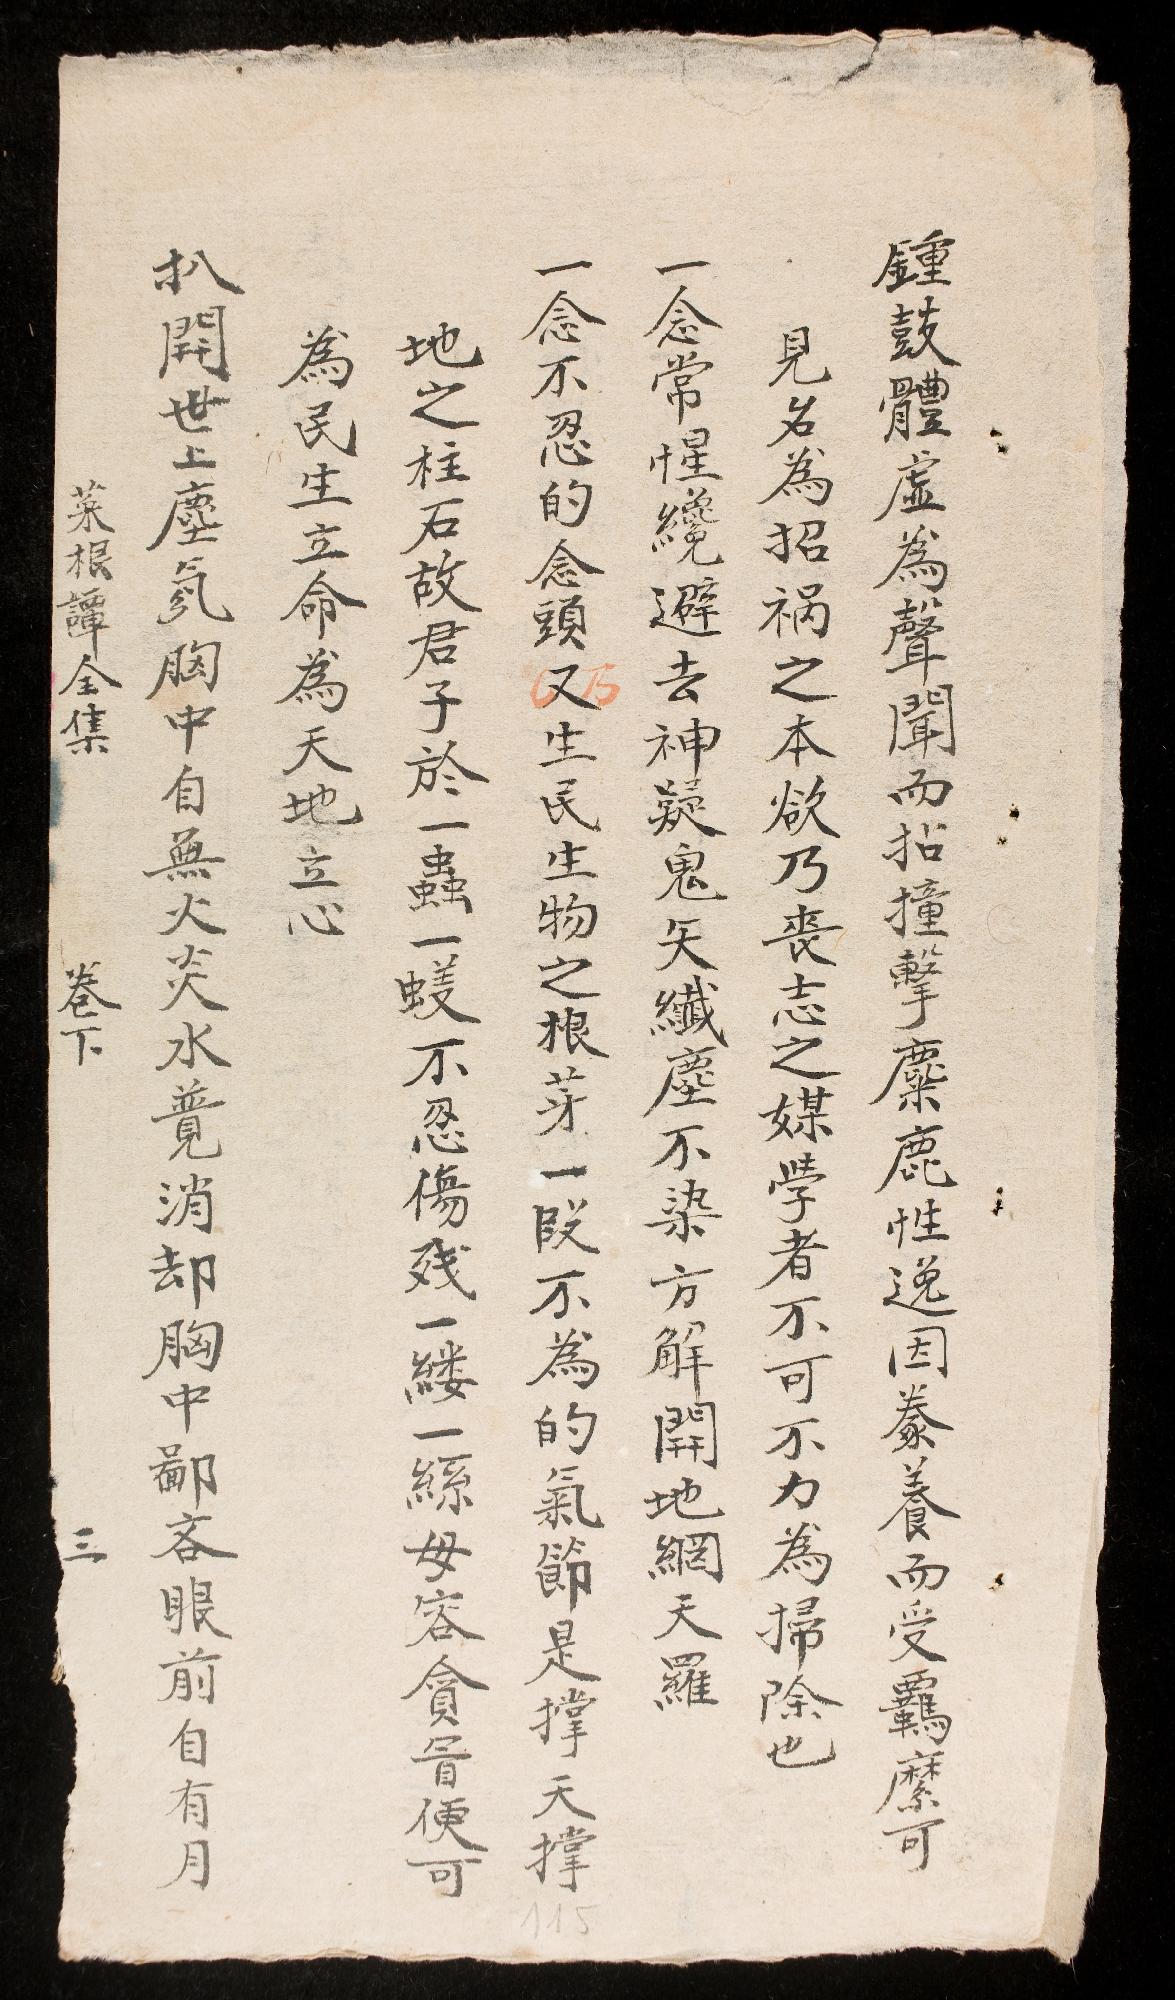 鍾鼓體虛為聲聞而招撞擊麋鹿性逸因豢養而受羈縻可
見名為招禍之本欲乃喪志之媒學者不可不力為掃除也
一念常惺纔避去神疑鬼矢纖塵不染方解開地網天羅
一念不忍的念頭又生民生物之根芽一段不為的氣節是撐天撐
地之柱石故君子於一蟲一蟻不忍傷殘一縷一絲毋容貪冒便可
為民生立命為天地立心
扒開世上塵氛胸中自無火炎水競消却胸中鄙吝眼前自有月
菜根譚全集 卷下 三
115